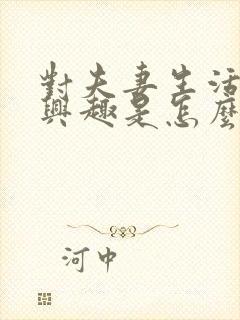 對夫妻生活
興趣是怎麼
河中